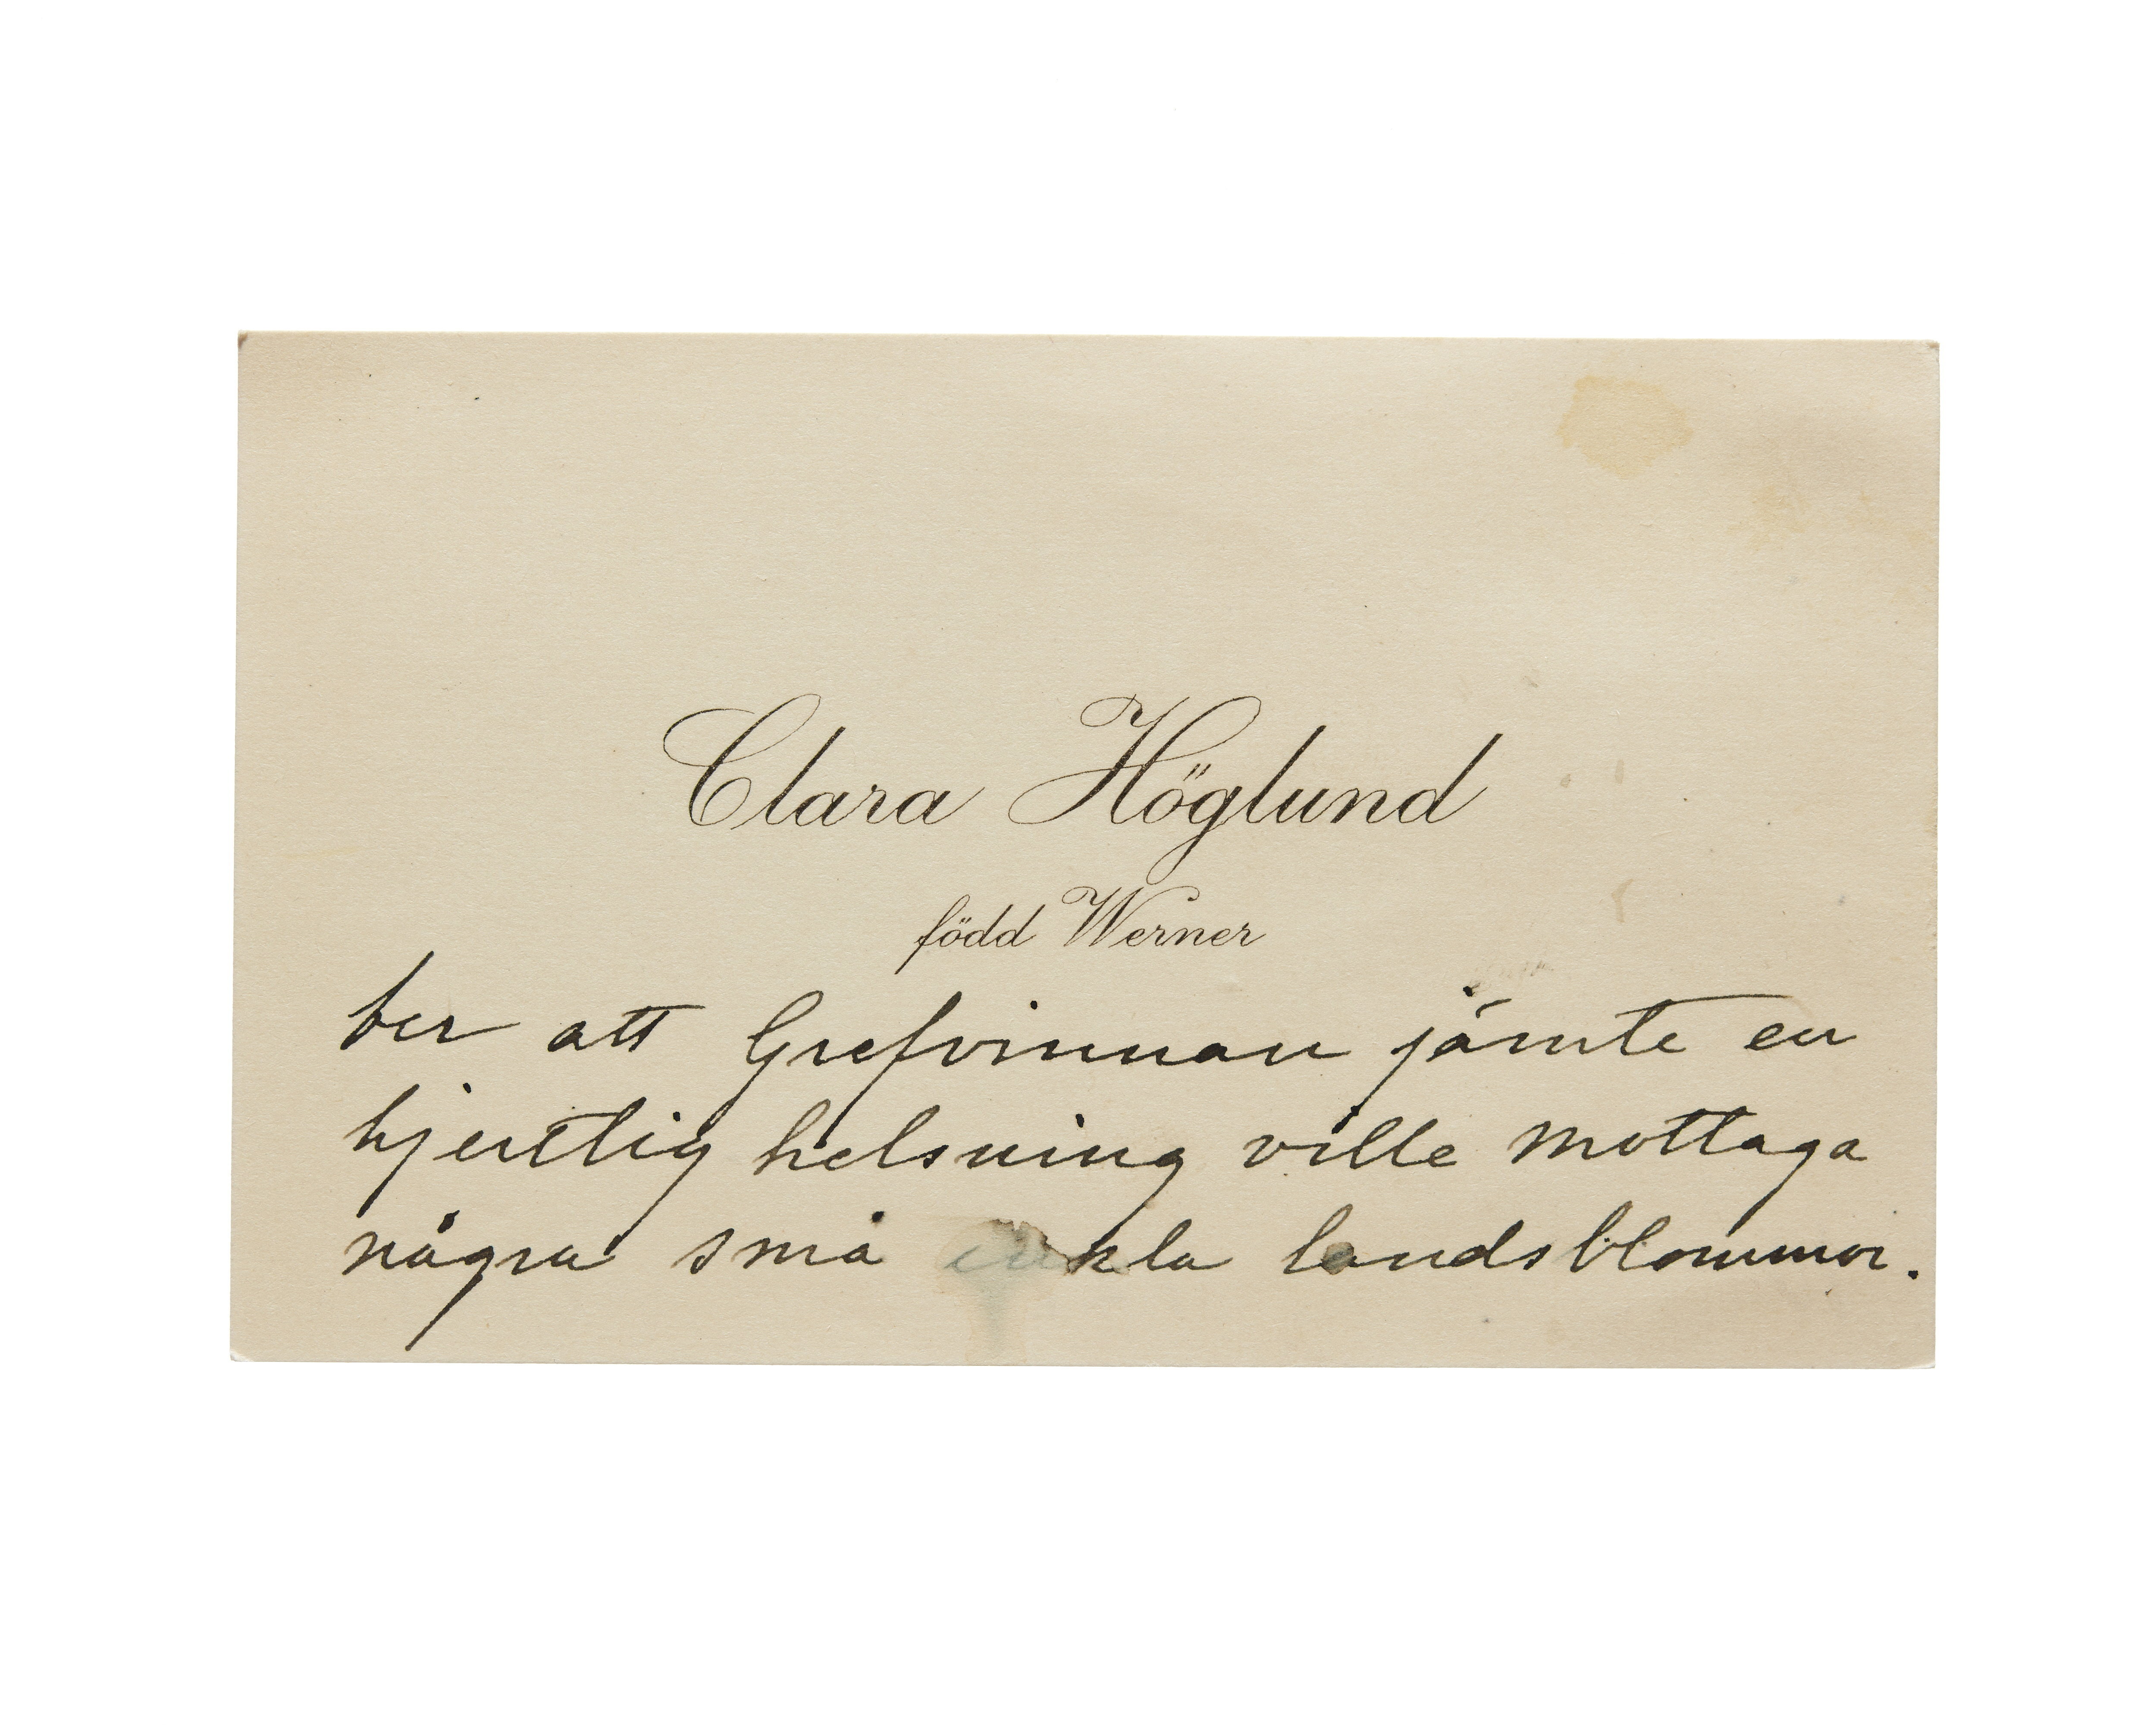 Clara Höglund
född Werner
ber att Grefvinnan jämte en
hjertlig helsning ville mottaga
några små enkla landsblommor.